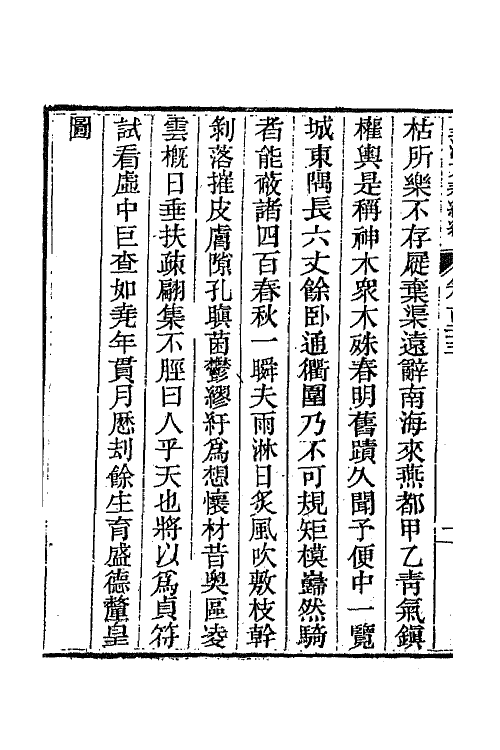 枯所樂不存屣棄渠遠辭南海來燕都甲乙靑氣鎭
權輿是稱神木衆木殊春明舊蹟久聞予便中一覽
城東隅長六丈餘臥通衢圍乃不可規矩模巋然騎
者能蔽諸四百春秋一瞬夫雨淋日炙風吹敷枝幹
剝落摧皮膚隙孔瞋菌鬱繆紆爲想懷材昔奧區凌
雲概日垂扶疎翩集不脛曰人乎天也將以爲貞符
試看虛中巨查如堯年貫月歴刼餘生育盛德釐皇
圖